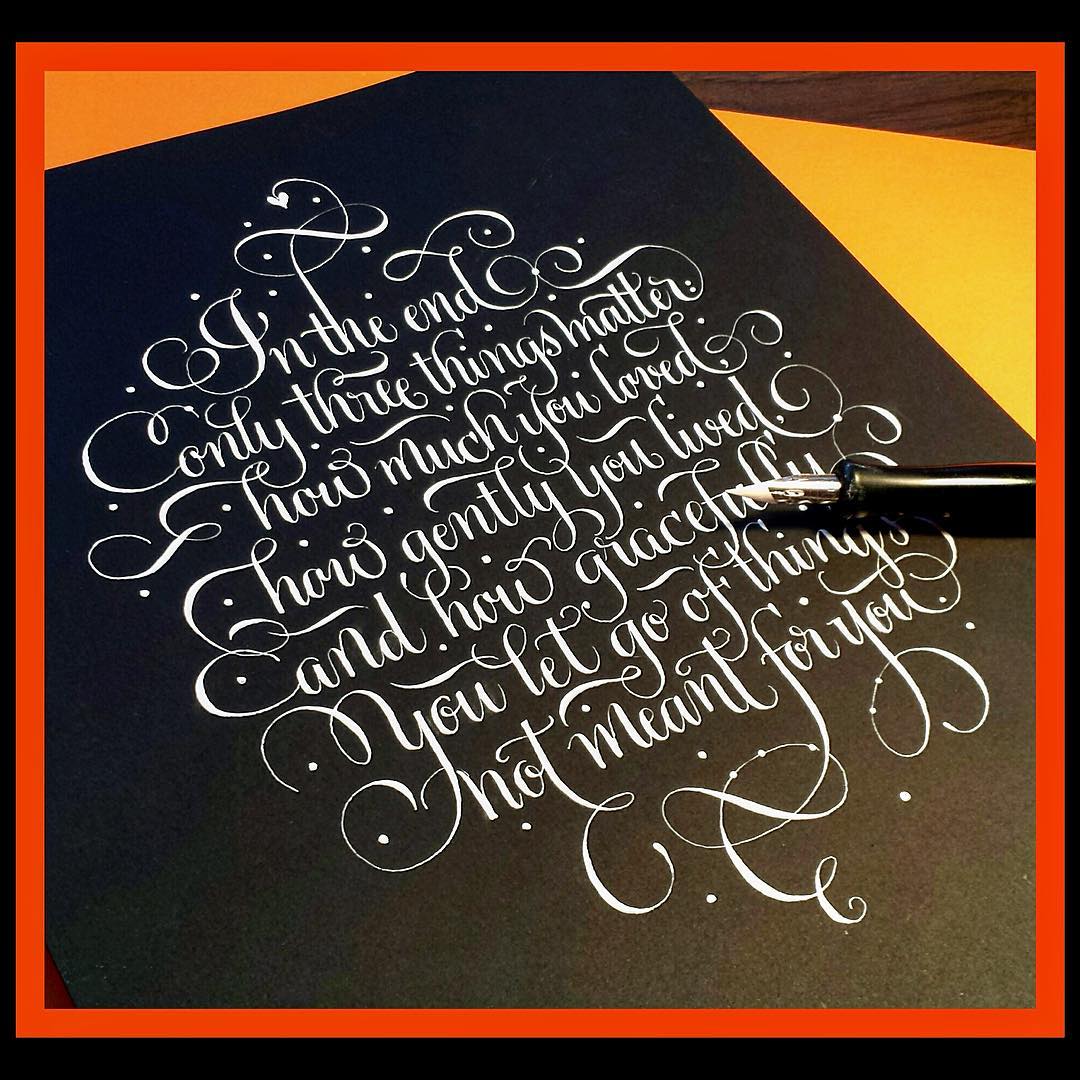 In the end
only three things matter:
how much you loved,
how gently you lived,
and how gracefully
you let go of things
not meant for you.